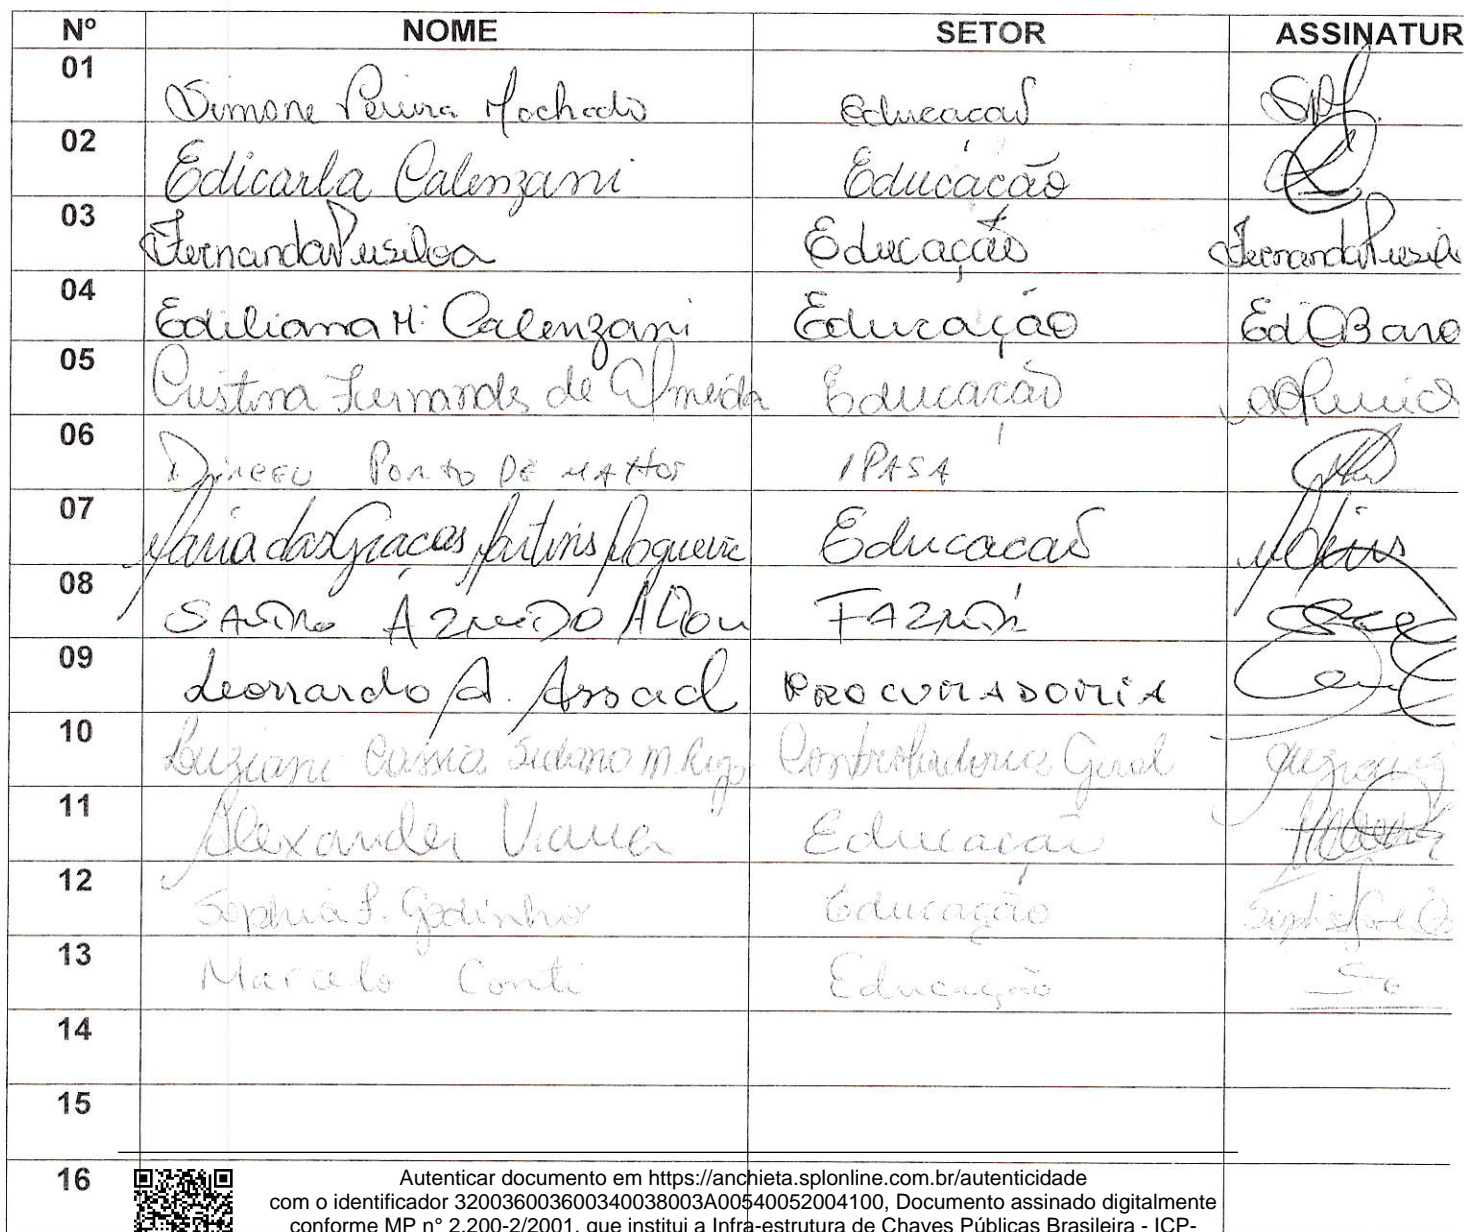 Nº NOME SETOR ASSINATUR
01 Simone Pereira Machado Educacaõ SPM
02 Edicarla Calenzani Educação
03 Fernanda Educação Fernanda
04 Ediliana M. Calenzani Educação
05 Cristina Fernandes de Almeida Educação
06 Dirceu Porto DE MATTOS IPASA
07 Maria das Graças Martins Nogueira Educacaõ
08 FAZENDA
09 Leonardo A. Assad PROCURADORIA
10 Luziani Cassia Controladoria Geral
11 Alexander Viana Educação
12 Sophia S. Godinho Educação
13 Marcelo Conti Educação
14
15
16
Autenticar documento em https://anchieta.splonline.com.br/autenticidade
com o identificador 320036003600340038003A00540052004100, Documento assinado digitalmente
conforme MP n° 2.200-2/2001, que institui a Infra-estrutura de Chaves Públicas Brasileira - ICP-